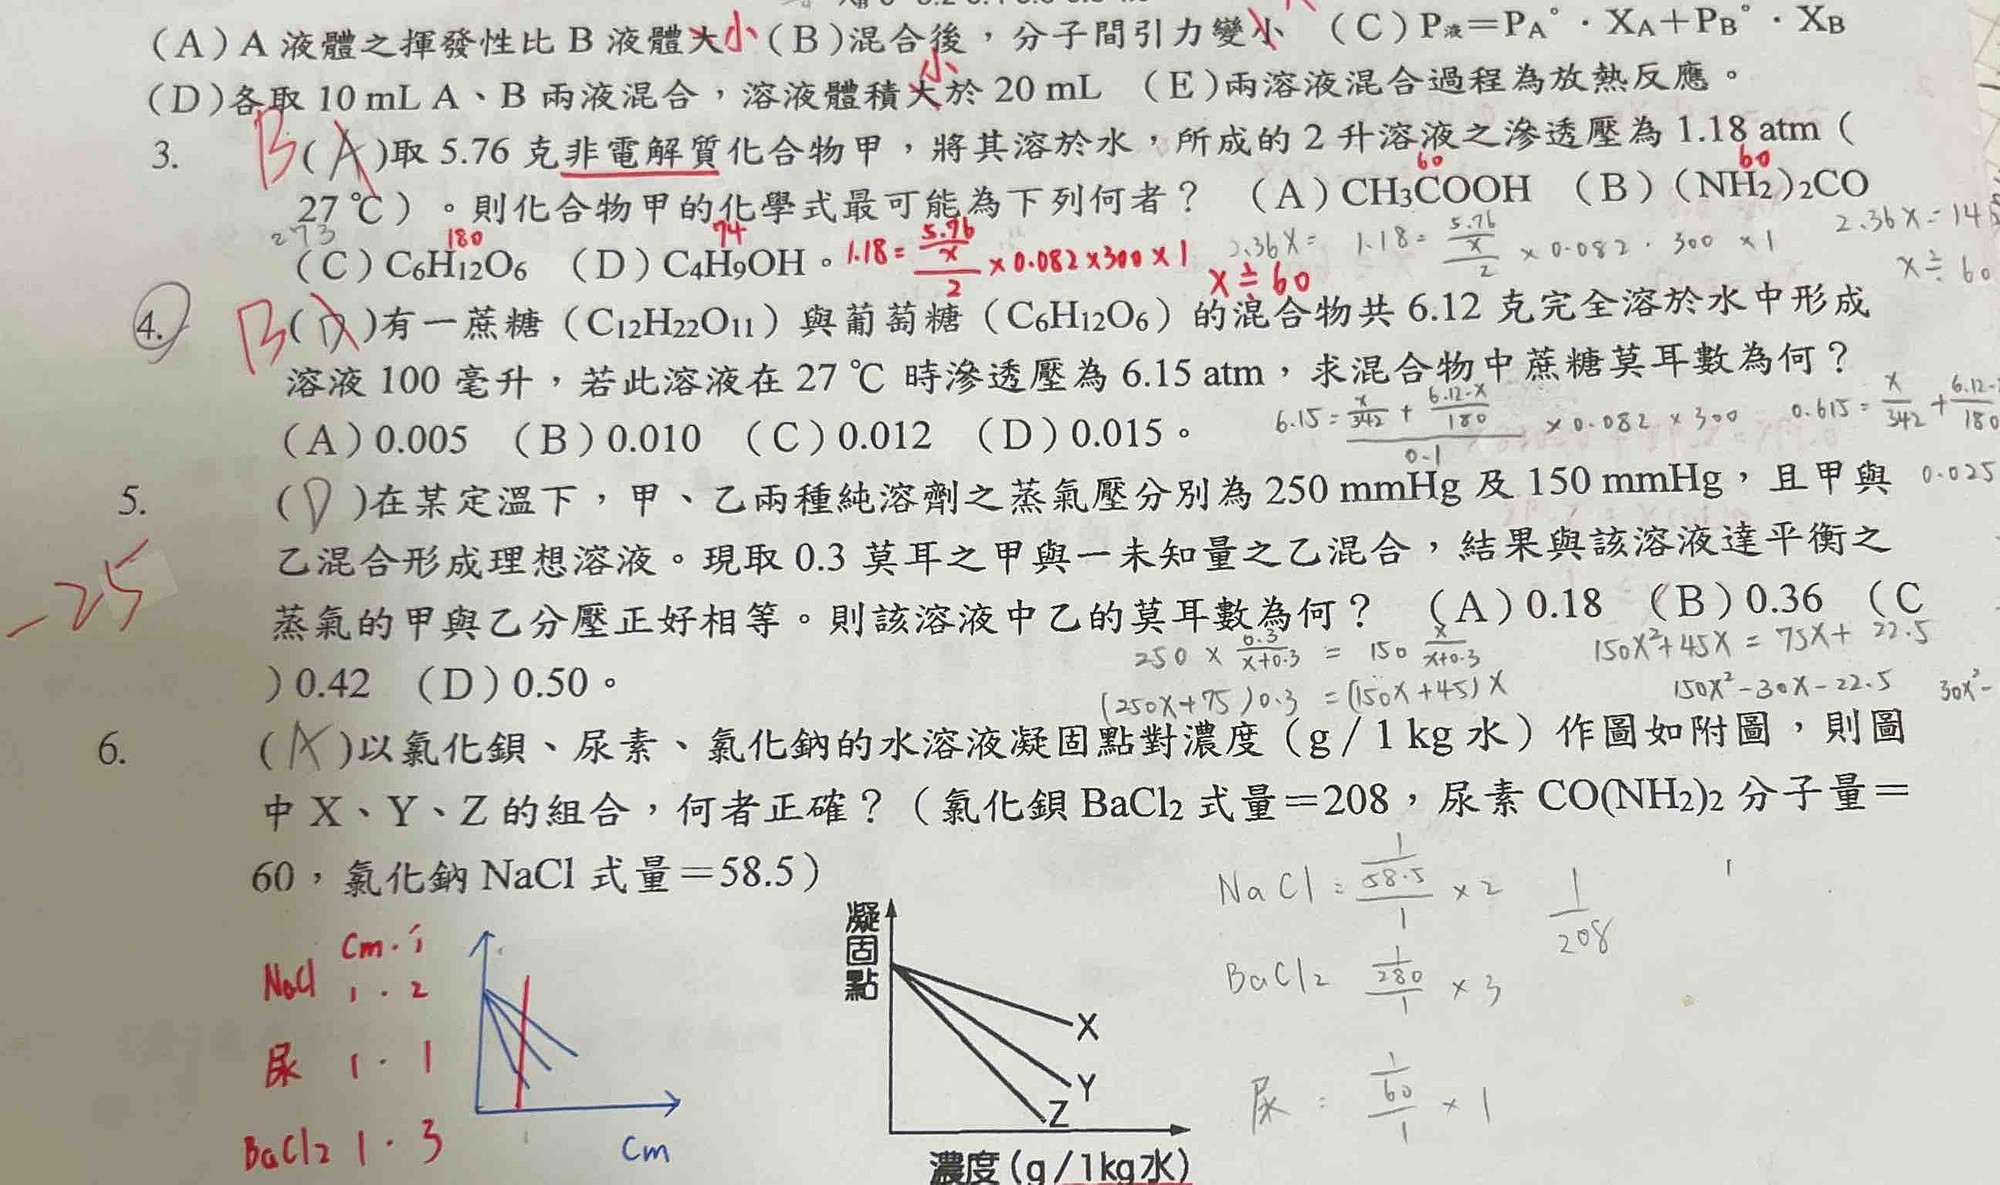 (A)A 液體之揮發性比 B 液體大小 (B)混合後,分子間引力變小 (C)P液=PA°·XA+PB°·XB
小
(D)各取 10 mL A、B 兩液混合,溶液體積大於 20 mL (E)兩溶液混合過程為放熱反應。
3. B(A)取 5.76 克非電解質化合物甲,將其溶於水,所成的 2 升溶液之滲透壓為 1.18 atm(
60 60
27 ℃)。則化合物甲的化學式最可能為下列何者? (A)CH3COOH (B)(NH2)2CO
273 180 74 2.36X=
(C)C6H12O6 (D)C4H9OH。1.18= 5.76/X/2 ×0.082×300×1 2.36X= 1.18= 5.76/X/2 ×0.082·300×1
X≒60 X≒60
4. B( )有一蔗糖(C12H22O11)與葡萄糖(C6H12O6)的混合物共 6.12 克完全溶於水中形成
溶液 100 毫升,若此溶液在 27 ℃ 時滲透壓為 6.15 atm,求混合物中蔗糖莫耳數為何?
(A)0.005 (B)0.010 (C)0.012 (D)0.015。
6.15= X/342 + 6.12-X/180 / 0.1 ×0.082×300 0.615= X/342 + 6.12-/180
5. (D)在某定溫下,甲、乙兩種純溶劑之蒸氣壓分別為 250 mmHg 及 150 mmHg,且甲與 0.025
乙混合形成理想溶液。現取 0.3 莫耳之甲與一未知量之乙混合,結果與該溶液達平衡之
-25
蒸氣的甲與乙分壓正好相等。則該溶液中乙的莫耳數為何? (A)0.18 (B)0.36 (C
250 × 0.3/X+0.3 = 150 X/X+0.3 150X²+45X = 75X+ 22.5
)0.42 (D)0.50。
(250X+75)0.3 =(150X+45)X 150X²-30X-22.5 30X²-
6. (A)以氯化鋇、尿素、氯化鈉的水溶液凝固點對濃度(g/1 kg 水)作圖如附圖,則圖
中 X、Y、Z 的組合,何者正確?(氯化鋇 BaCl2 式量=208,尿素 CO(NH2)2 分子量=
60,氯化鈉 NaCl 式量=58.5)
NaCl: 1/58.5/1 ×2 1/208
BaCl2 1/280/1 ×3
尿: 1/60/1 ×1
Cm·i
NaCl 1·2
尿 1·1
BaCl2 1·3
Cm
凝固點
X
Y
Z
濃度(g/1kg水)